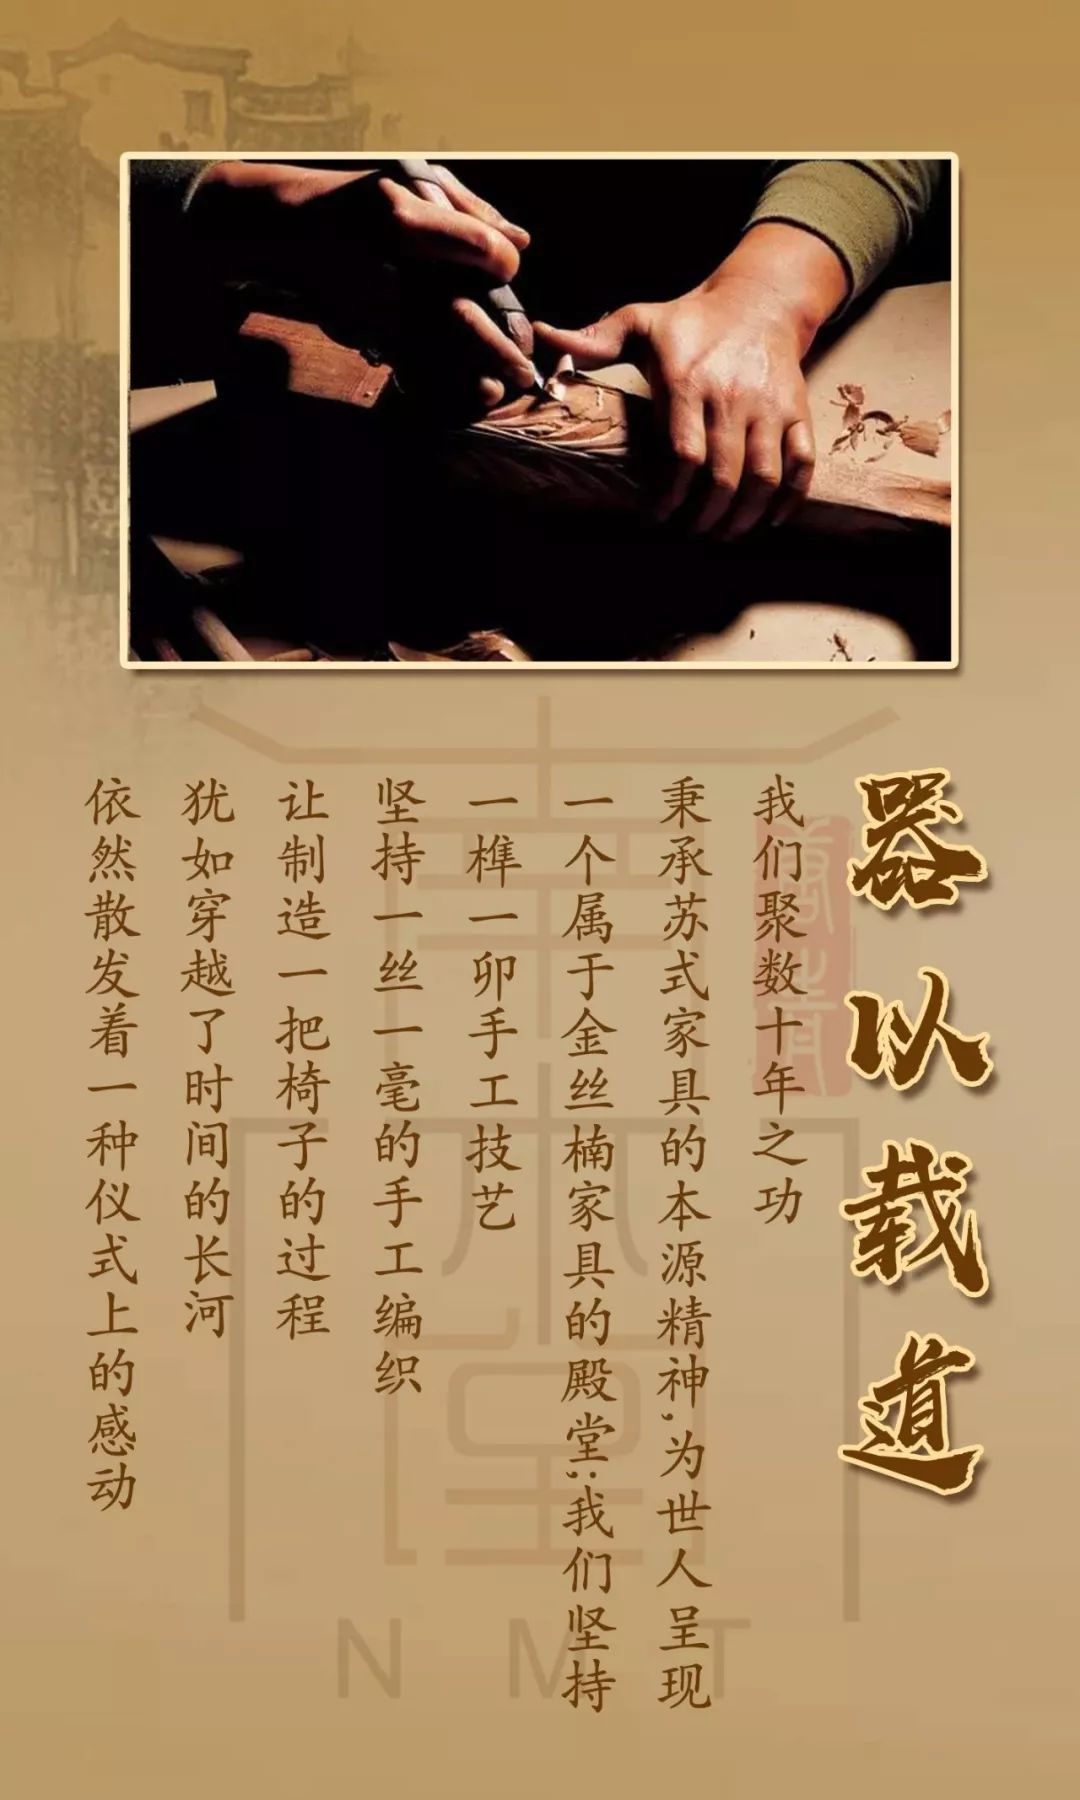 器以载道
我们聚数十年之功
秉承苏式家具的本源精神,为世人呈现
一个属于金丝楠家具的殿堂;我们坚持
一榫一卯手工技艺
坚持一丝一毫的手工编织
让制造一把椅子的过程
犹如穿越了时间的长河
依然散发着一种仪式上的感动
南木堂
NMT